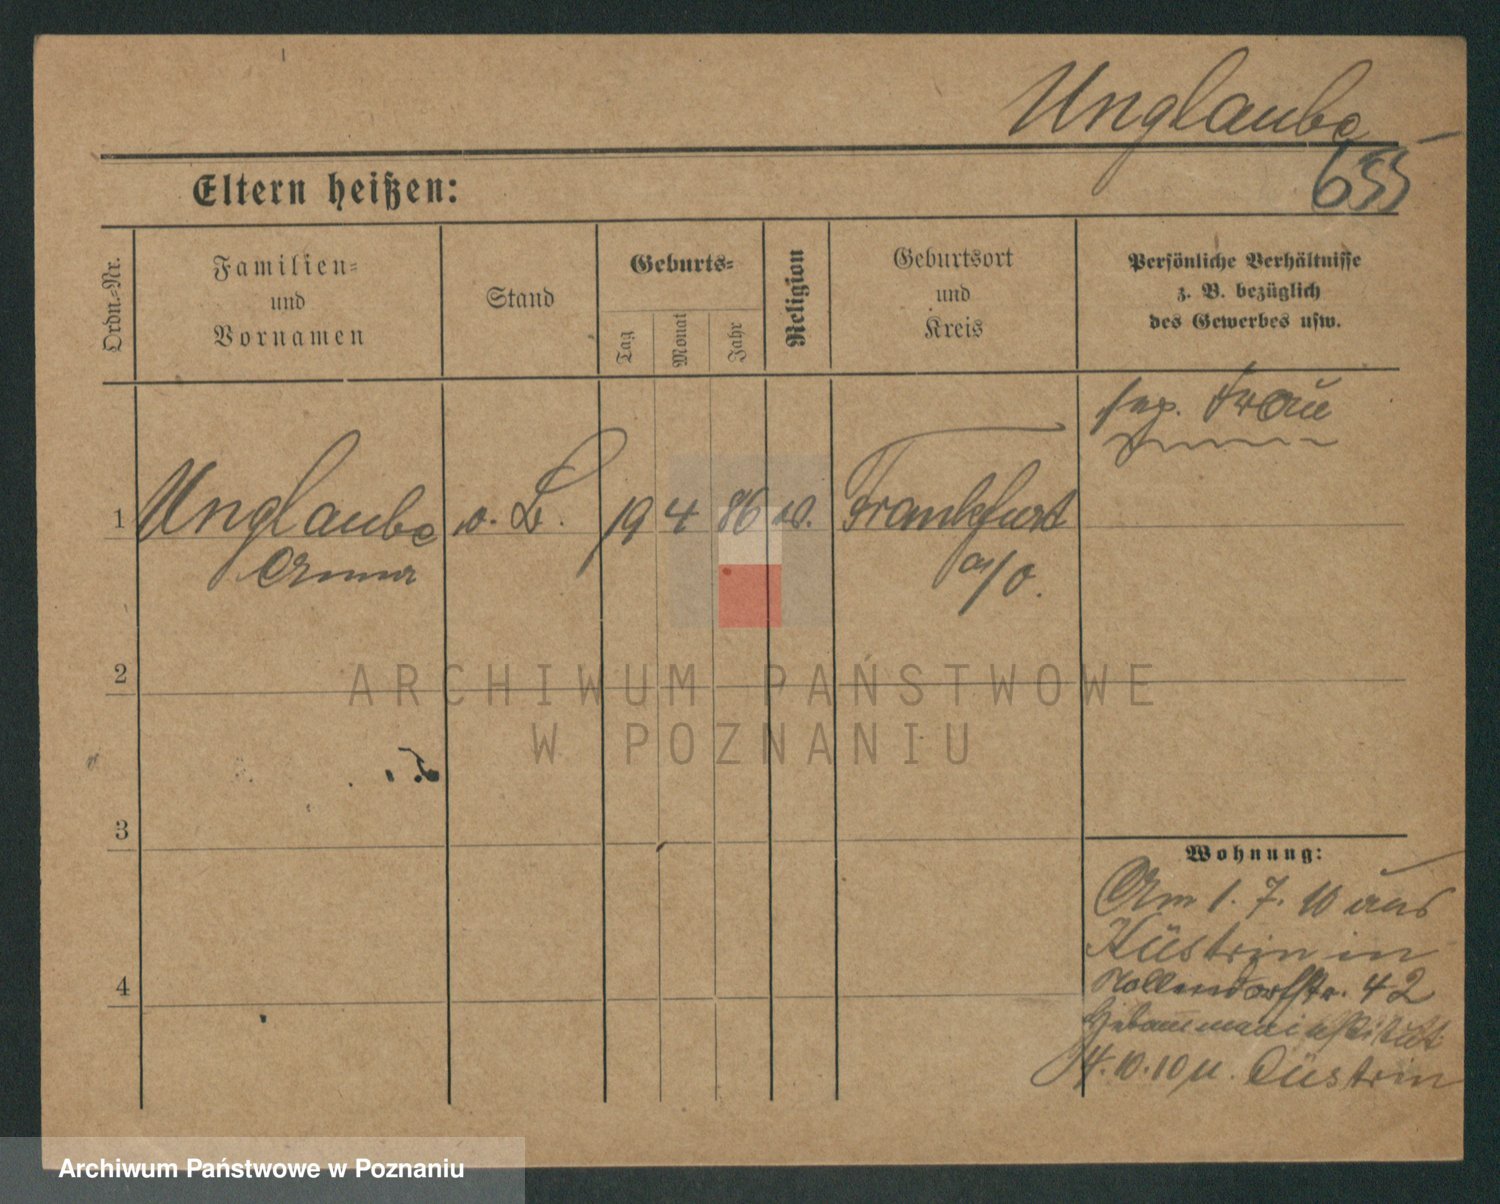 Unglaube
655
Eltern heißen:
Ordn.-Nr.
Familien-
und
Vornamen
Stand
Geburts-
Tag
Monat
Jahr
Religion
Geburtsort
und
Kreis
Persönliche Verhältnisse
z. B. bezüglich
des Gewerbes usw.
sep. Frau
1 Unglaube o. B. 19 4 86 ev. Frankfurt
Anna a/O.
2
3
4
Wohnung:
Am 1. 7. 10 aus
Küstrin in
Nollendorfstr. 42
Hebammeninstitut
4. 10. 10 n. Cüstrin
ARCHIWUM PAŃSTWOWE
W POZNANIU
Archiwum Państwowe w Poznaniu